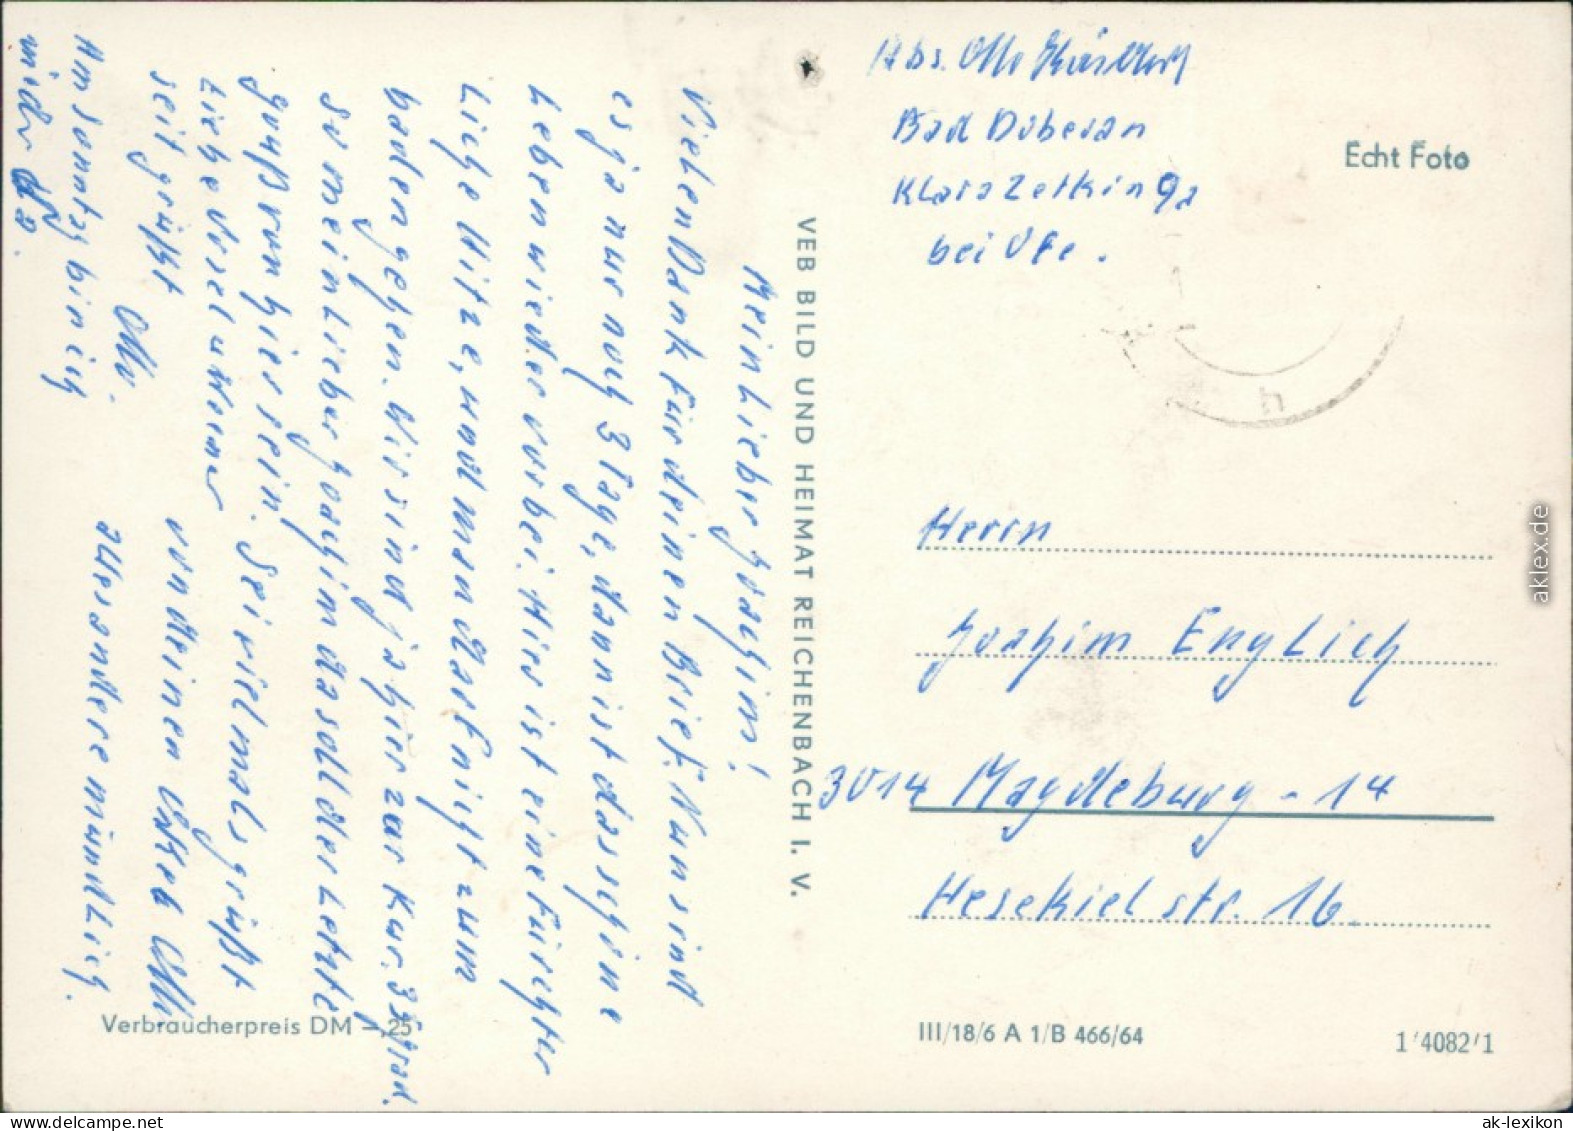 Mein Lieber Joachim!
Vielen Dank für deinen Brief. Nun sind
es ja nur noch 3 Tage, dann ist das schöne
Leben wieder vorbei. Hier ist eine fürchter
Liche Hitze, und man darf nicht zum
baden gehen. Wir sind ja hier zur Kur. 35 Grad.
So mein Lieber Joachim das soll der Letzte
Gruß von hier sein. Sei vielmals grüßt
Liebe Ursel u Werner
seit grüßt
Otto.
von deinen Otto
Am Sonntag bin ich
wieder da.
Alles andere mündlich.
VEB BILD UND HEIMAT REICHENBACH I. V.
Abs. Otto
Bad Doberan
Klara Zetkin 9a
bei
Echt Foto
Herrn
Joachim Englich
3014 Magdeburg - 14
Hesekiel str. 16
Verbraucherpreis DM —,25
III/18/6 A 1/B 466/64
1'4082'1
aklex.de
www.delcampe.net
ak-lexikon